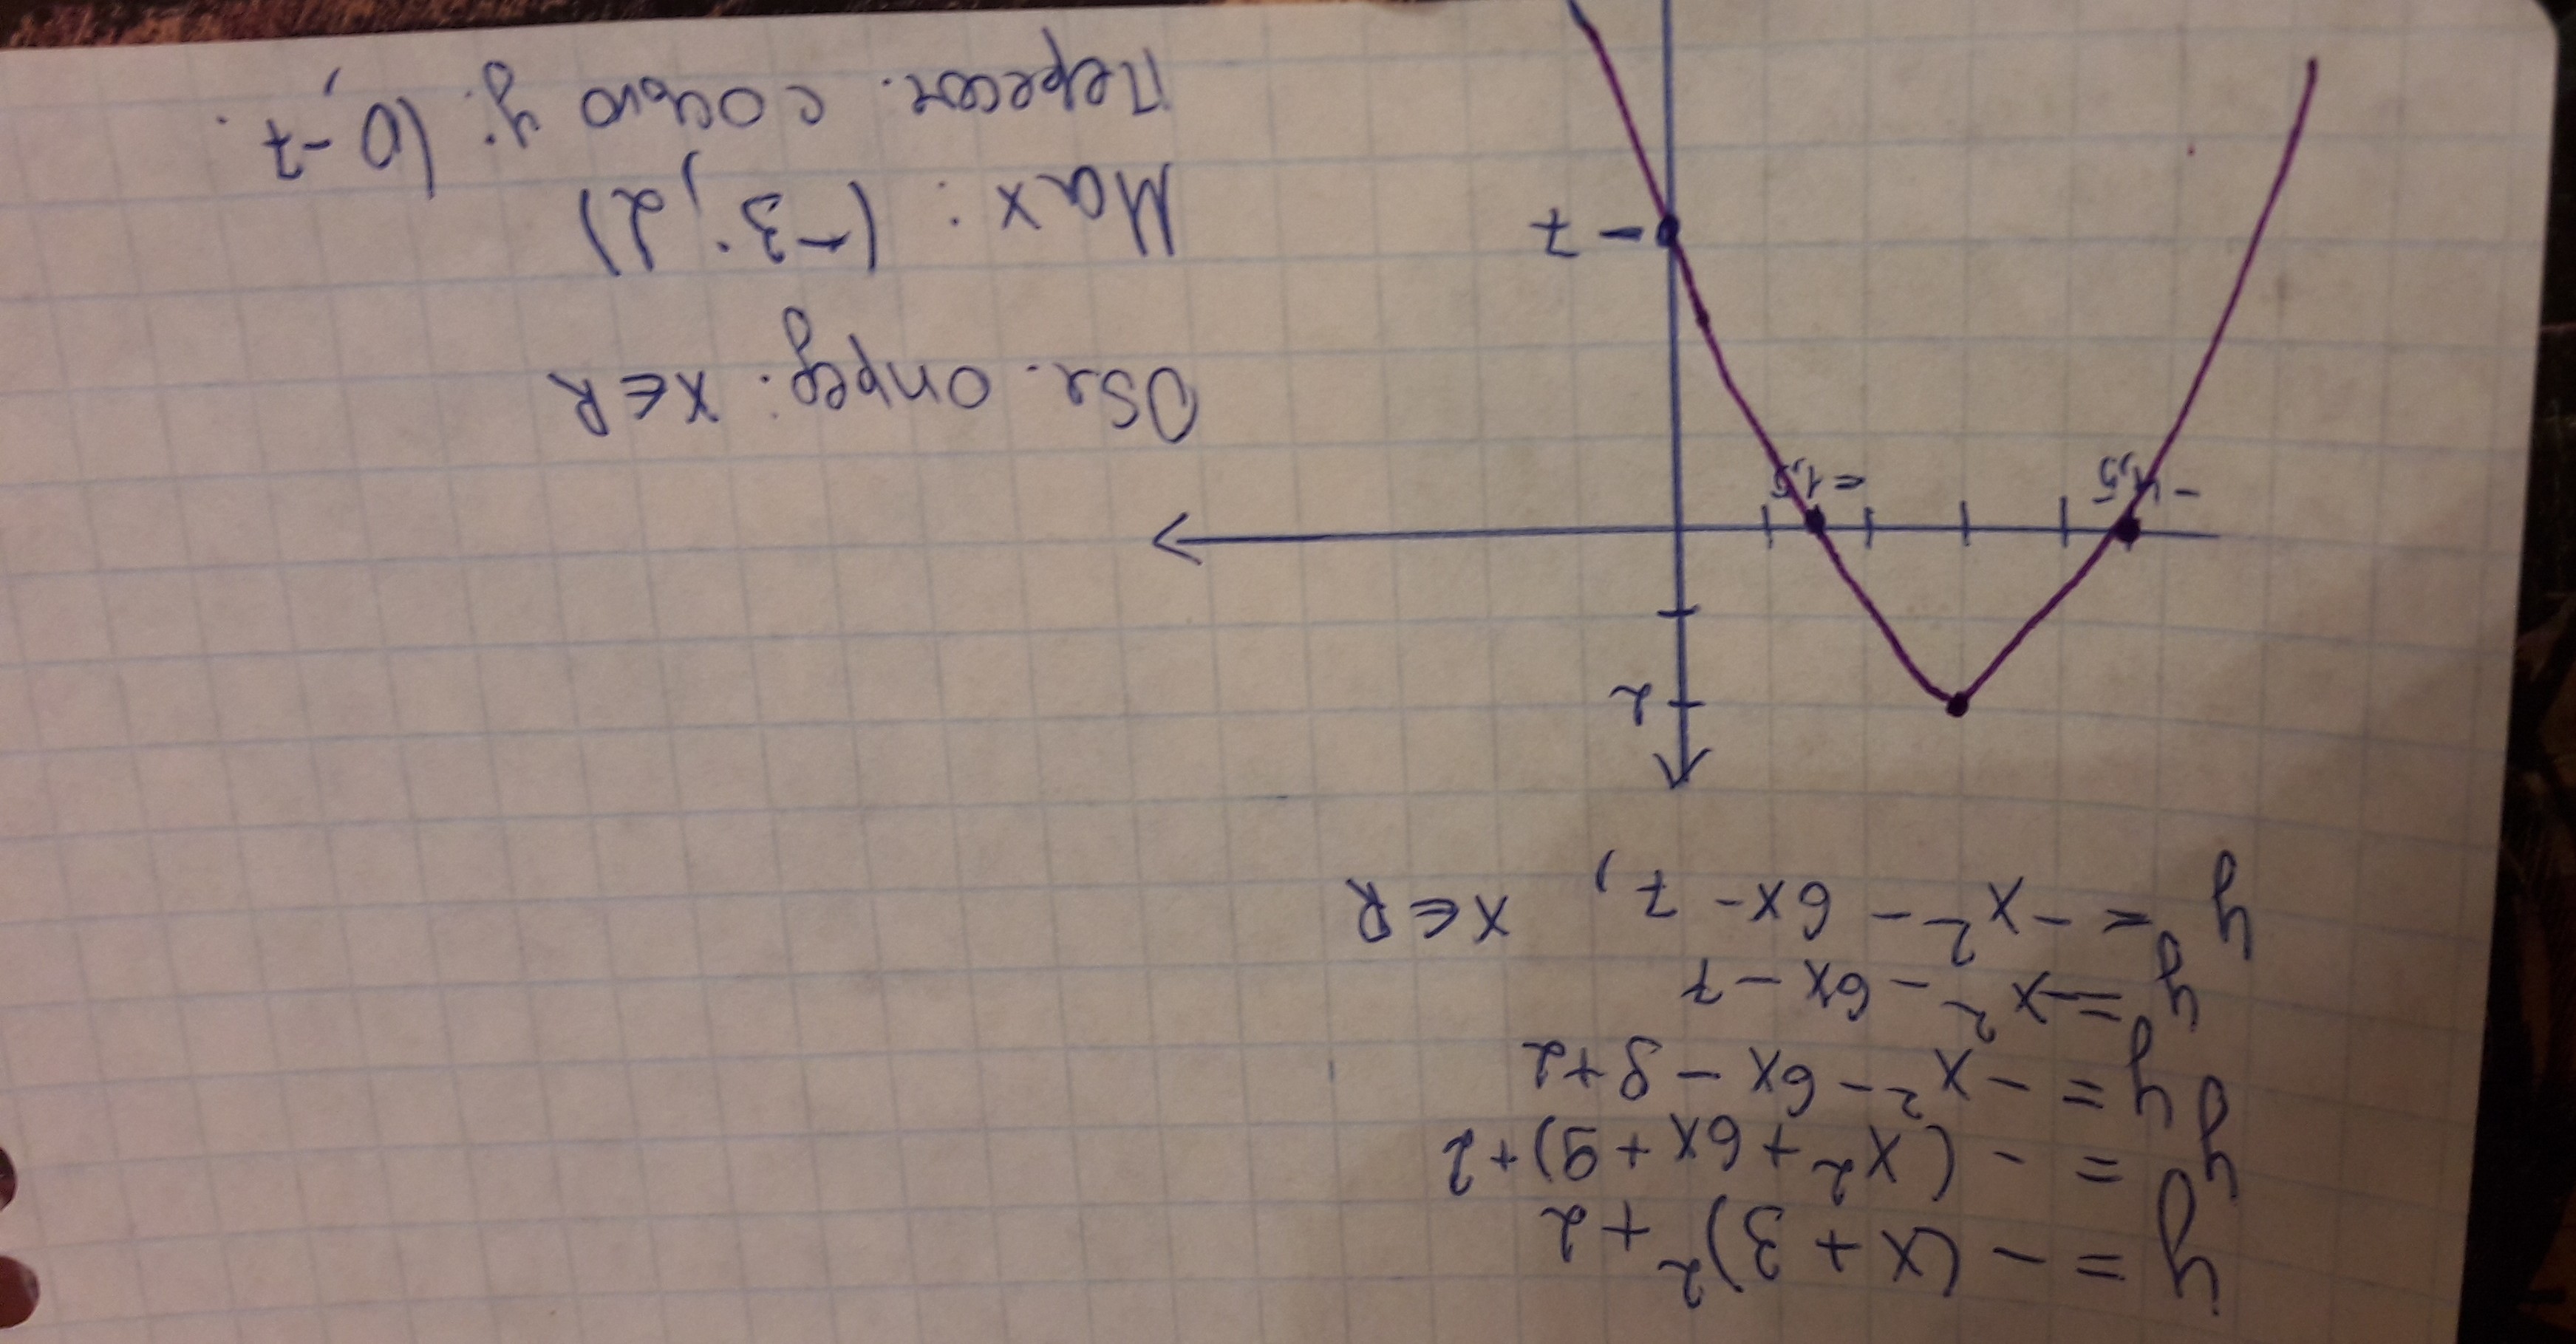 y = - (x + 3)² + 2
y = - (x² + 6x + 9) + 2
y = - x² - 6x - 9 + 2
y = -x² - 6x - 7
y = -x² - 6x - 7, x ∈ R
2
-4,5
-1,5
-7
Обл. опред: x ∈ R
Max: (-3; 2)
Пересеч. с осью y: (0; -7